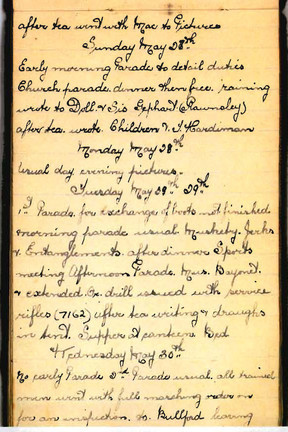 after tea went with Mac to Pictures
Sunday May 28th
Early morning Parade to detail duties
Church parade, dinner then free, raining
wrote to Doll & Sis Gephard (Paunsley)
after tea. wrote. Children &
Monday May 28th
Usual day evening pictures.
Tuesday May 29th 29th
1st Parade for exchange of boots not finished
morning parade usual Musketry Jerks
& Entanglements. after dinner Sports
meeting Afternoon Parade. Mus. Bayont.
& extended Ox. drill issued with service
rifles (7162) after tea writing & draughs
in tent. Supper at canteen Bed
Wednesday May 30th
No early Parade 2nd Parade usual. all trained
men went with full marching order on
for an inspection to Bulford leaving